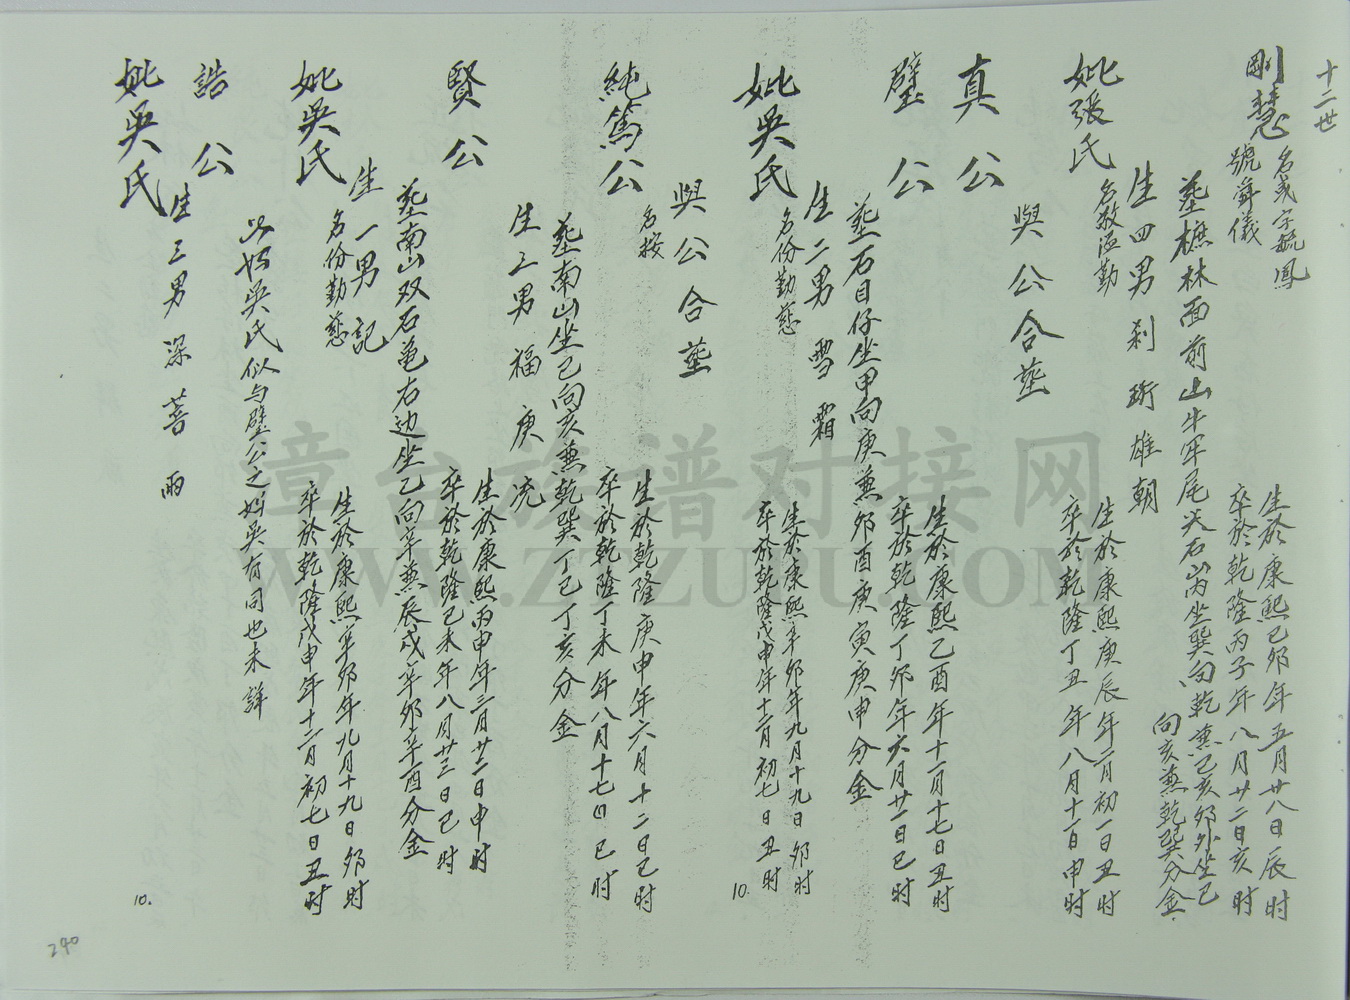 十二世
剛慧 名或字毓鳳
號舜儀
生於康熙己卯年五月廿八日辰时
卒於乾隆丙子年八月廿二日亥时
墓樜林面前山牛牢尾尖石崗坐巽向乾兼己亥外坐巳
向亥兼乾巽分金
生四男 剎 珩 雄 朝
妣張氏 名敦溫勤
生於康熙庚辰年二月初一日丑时
卒於乾隆丁丑年八月十一日申时
與公合塟
真公
璧公
生於康熙乙酉年十一月十七日丑时
卒於乾隆丁卯年六月廿一日巳时
塟石目仔坐甲向庚兼卯酉庚寅庚申分金
生二男 雪 霜
妣吳氏 名份勤慈
生於康熙辛卯年九月十九日卯时
卒於乾隆戊申年十二月初七日丑时
10.
與公合塟
純篤公 名按
生於乾隆庚申年六月十二日巳时
卒於乾隆丁未年八月十七日巳时
塟南山坐巳向亥兼乾巽丁巳丁亥分金
生三男 福 庚 冼
賢公
生於康熙丙申年三月廿二日申时
卒於乾隆己未年八月廿三日巳时
塟南山双石龟右边坐乙向辛兼辰戌辛卯辛酉分金
生一男 記
妣吳氏 名份勤慈
生於康熙辛卯年九月十九日卯时
卒於乾隆戊申年十二月初七日丑时
此妈吳氏似与璧公之妈吳有同也未詳
誥公
生三男 深 菩 雨
妣吳氏
10.
290
漳台族谱对接网
WWW.ZTZUPU.COM